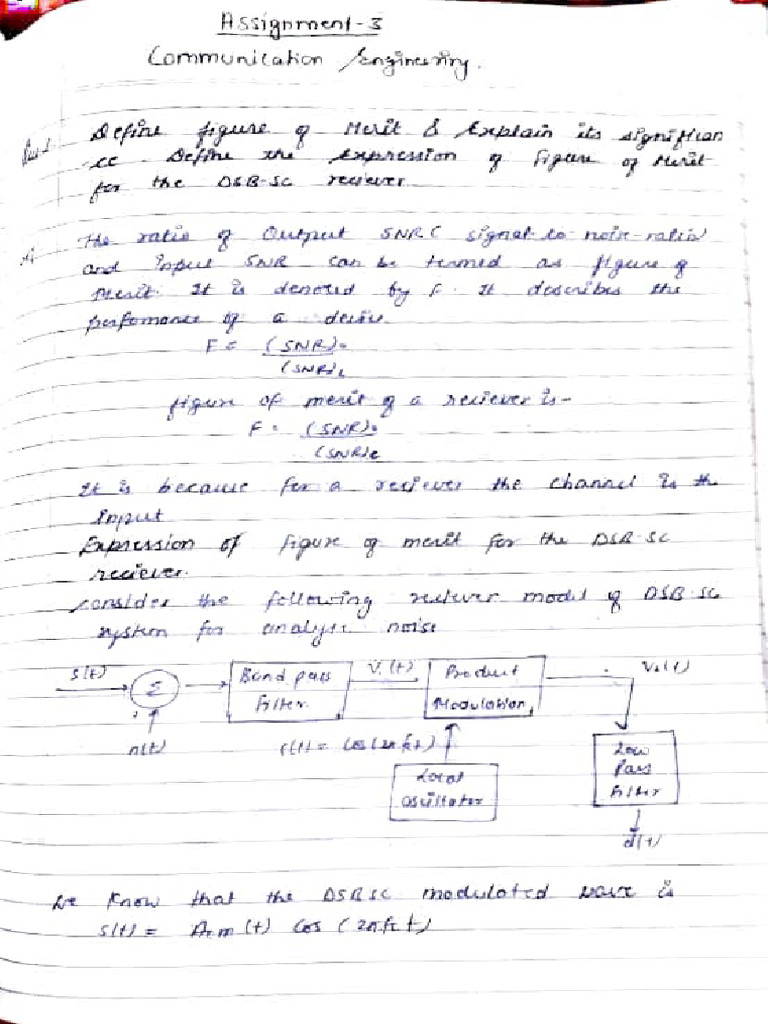 Assignment-3
Communication Engineering.
Ques 1 Define figure of Merit & Explain its signifian
ce Define the Expression of Figure of Merit
for the DSB-SC reciever
A The ratio of Output SNR ( signal-to-noise-ratio)
and input SNR can be termed as figure of
Merit. It is denoted by F. It describes the
perfomance of a
F = (SNR)o
(SNR)i
figure of merit of a reciever is-
F = (SNR)o
(SNR)c
It is because for a reciever the channel is the
input
Expression of figure of merit for the DSB-SC
reciever.
consider the following reciever model of DSB-SC
system for analyse noise
s(t)
Σ
Band pass
Filter
V1(t)
Product
Modulation
V2(t)
n(t)
c(t) = cos(2πfct)
Local
oscillator
Low
Pass
Filter
d(t)
We know that the DSBSC modulated wave is
s(t) = Acm(t) cos (2πfct)